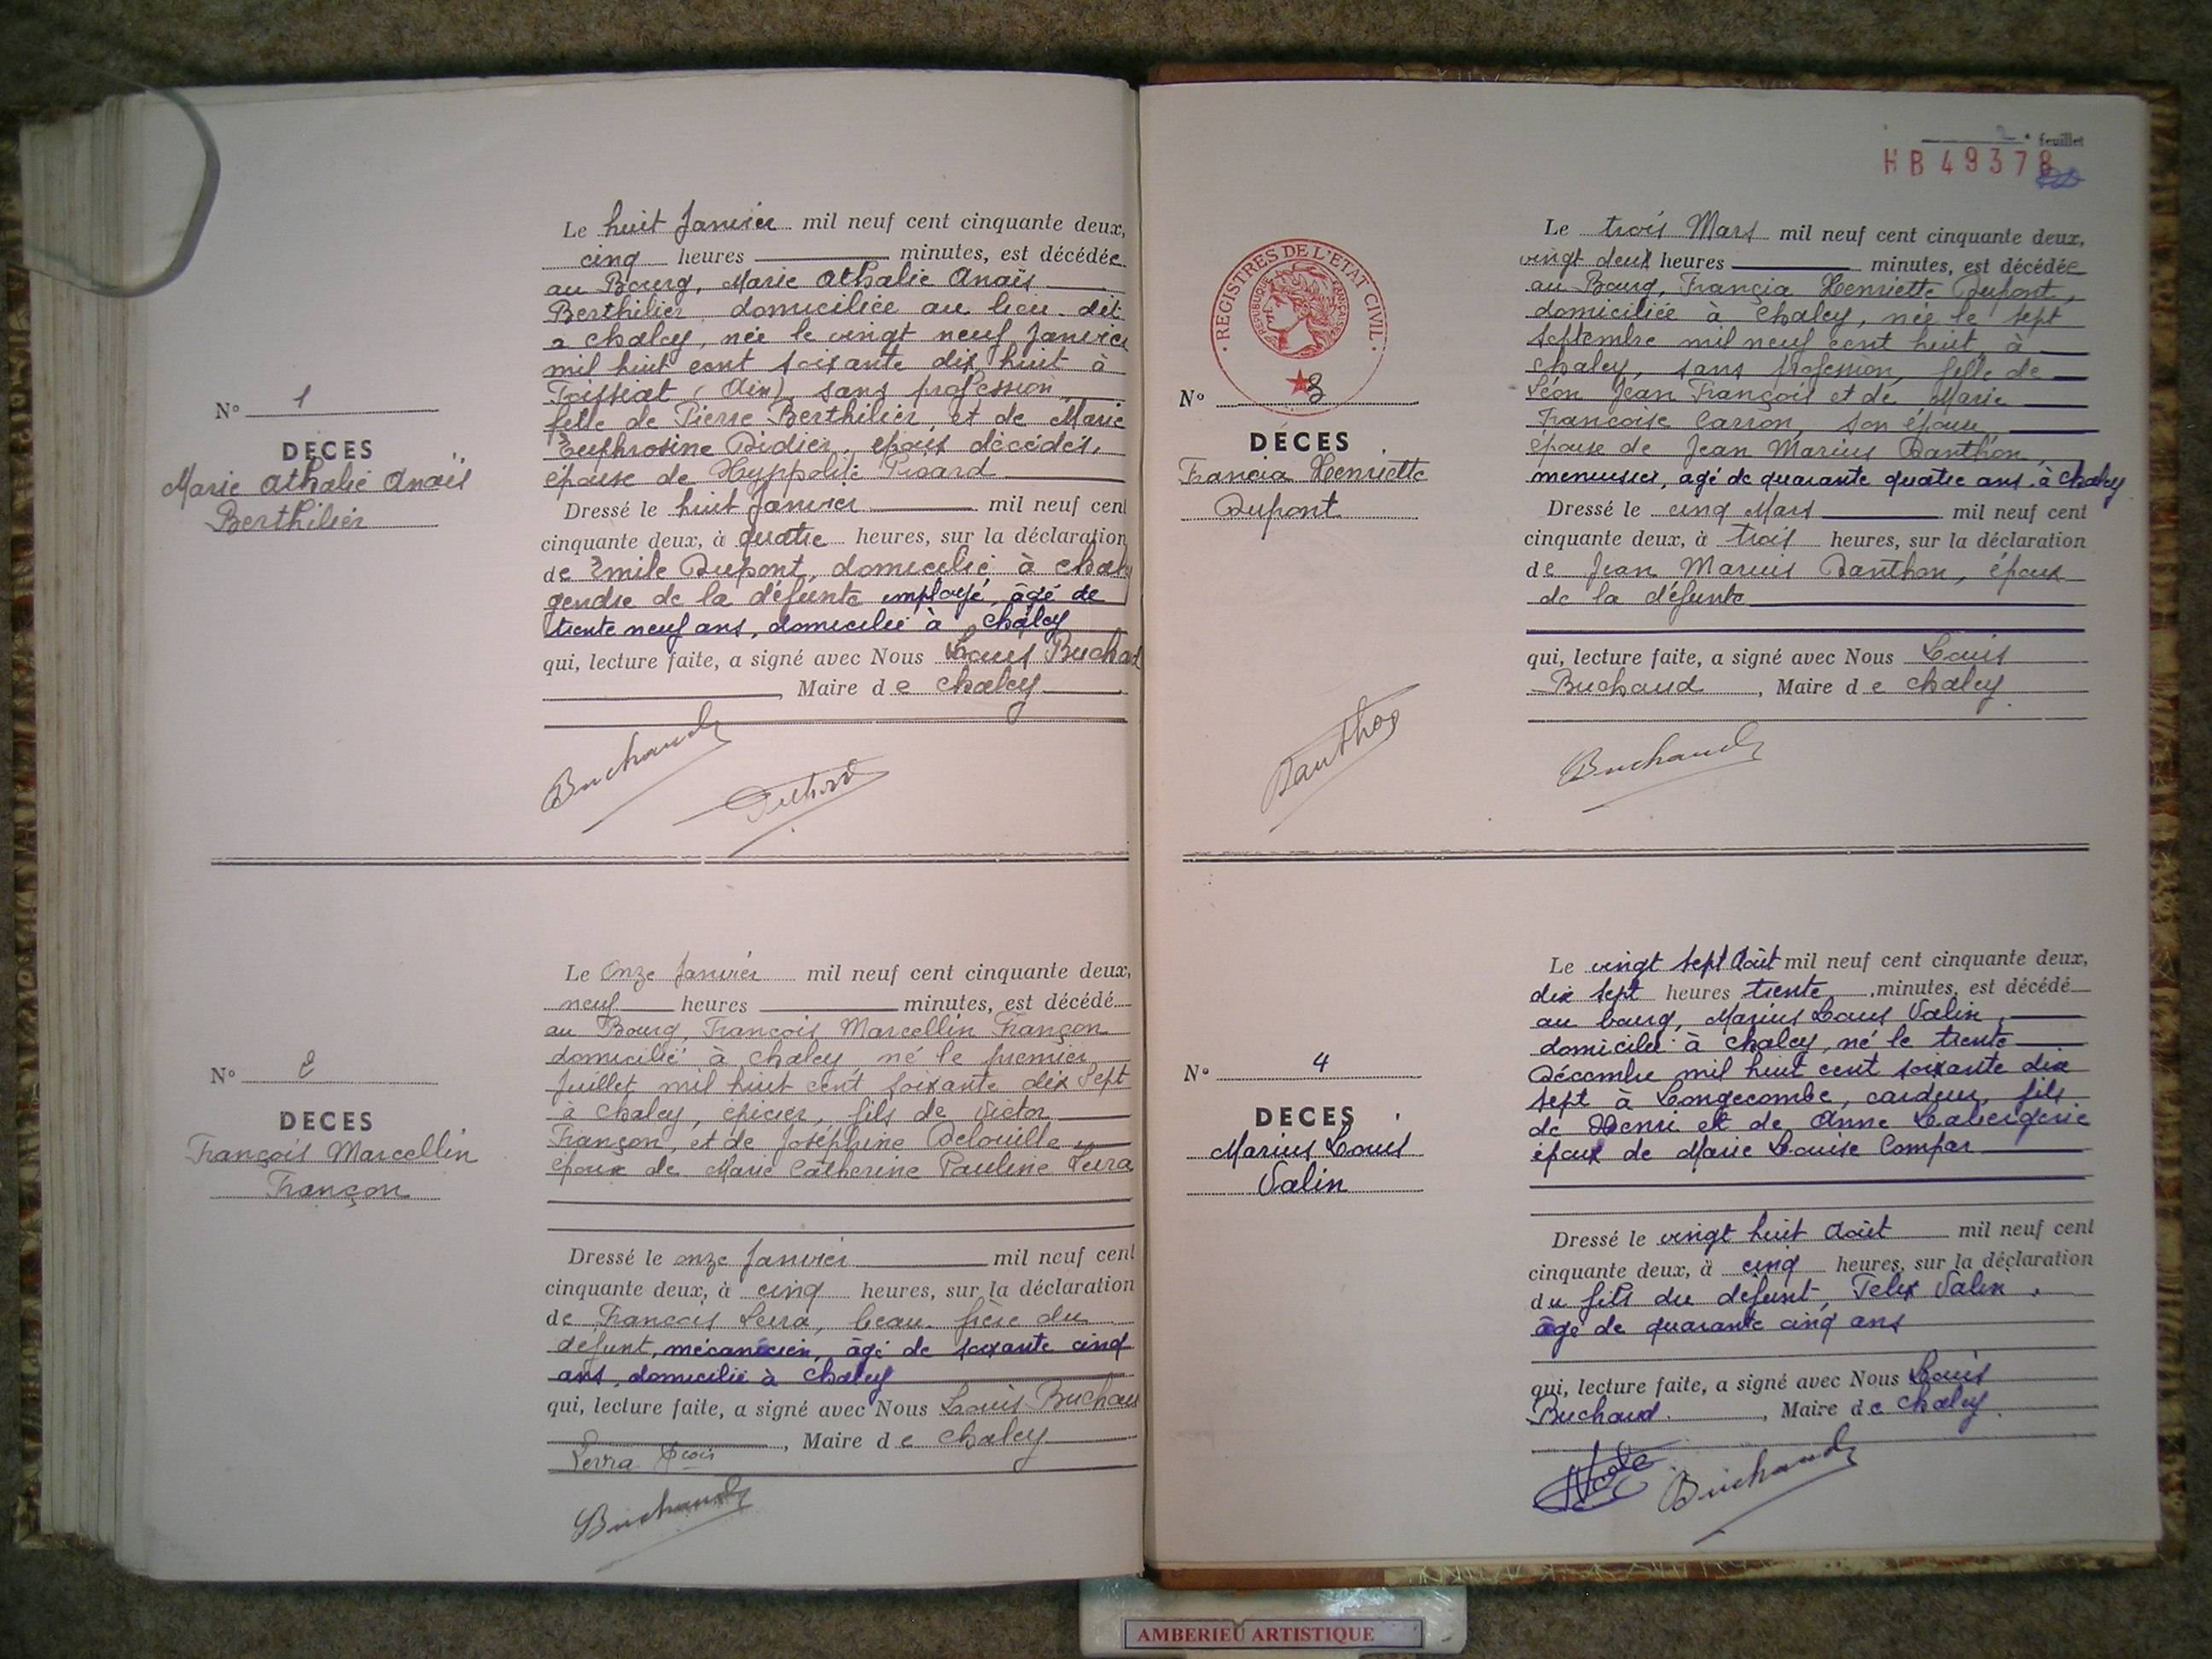 N° 1
DECES
Marie Athalie Anaïs
Berthilier
Le huit Janvier mil neuf cent cinquante deux,
cinq heures minutes, est décédée
au Bourg, Marie Athalie Anaïs
Berthilier, domiciliée au lieu-dit
à Chaley, née le vingt neuf Janvier
mil huit cent soixante dix huit à
(Ain), sans profession,
fille de Pierre Berthilier, et de Marie
Euphrosine Didier, époux décédés,
épouse de Hyppolite
Dressé le huit Janvier mil neuf cent
cinquante deux, à quatre heures, sur la déclaration
de Emile Dupont, domicilié à Chaley
gendre de la défunte employé, âgé de
trente neuf ans, domicilié à Chaley
qui, lecture faite, a signé avec Nous Louis Buchaud
, Maire de Chaley
Buchaud
N° 2
DECES
François Marcellin
Françon
Le Onze Janvier mil neuf cent cinquante deux,
neuf heures minutes, est décédé
au Bourg, François Marcellin Françon
domicilié à Chaley né le premier
Juillet mil huit cent soixante dix sept
à Chaley, épicier, fils de Victor
Françon, et de Joséphine Delouille
époux de Marie Catherine Pauline Serra
Dressé le onze Janvier mil neuf cent
cinquante deux, à cinq heures, sur la déclaration
de François Serra, beau-frère du
défunt, mécanicien, âgé de soixante cinq
ans, domicilié à Chaley
qui, lecture faite, a signé avec Nous Louis Buchau
, Maire de Chaley
Serra Fçois
Buchaud
2 e feuillet
HB 49378
REGISTRES DE L'ETAT CIVIL
REPUBLIQUE FRANÇAISE
N° 3
DECES
Francia Henriette
Dupont
Le trois Mars mil neuf cent cinquante deux,
vingt deux heures minutes, est décédée
au Bourg, Francia Henriette Dupont,
domiciliée à Chaley, née le sept
septembre mil neuf cent huit, à
Chaley, sans profession, fille de
Léon Jean François et de Marie
Françoise Carron, son épouse,
épouse de Jean Marius Danthon,
menuisier, agé de quarante quatre ans à Chaley
Dressé le cinq Mars mil neuf cent
cinquante deux, à trois heures, sur la déclaration
de Jean Marius Danthon, époux
de la défunte
qui, lecture faite, a signé avec Nous Louis
Buchaud , Maire de Chaley
Danthon
Buchaud
N° 4
DECES
Marius Louis
Valin
Le vingt sept Août mil neuf cent cinquante deux,
dix sept heures trente minutes, est décédé
au bourg, Marius Louis Valin,
domicilié à Chaley, né le trente
Décembre mil huit cent soixante dix
sept à Longecombe, cardeur, fils
de Henri et de Anne Labergerie
époux de Marie Louise Compar
Dressé le vingt huit Août mil neuf cent
cinquante deux, à cinq heures, sur la déclaration
du fils du défunt, Felix Valin,
âgé de quarante cinq ans
qui, lecture faite, a signé avec Nous Louis
Buchaud , Maire de Chaley
Buchaud
AMBERIEU ARTISTIQUE